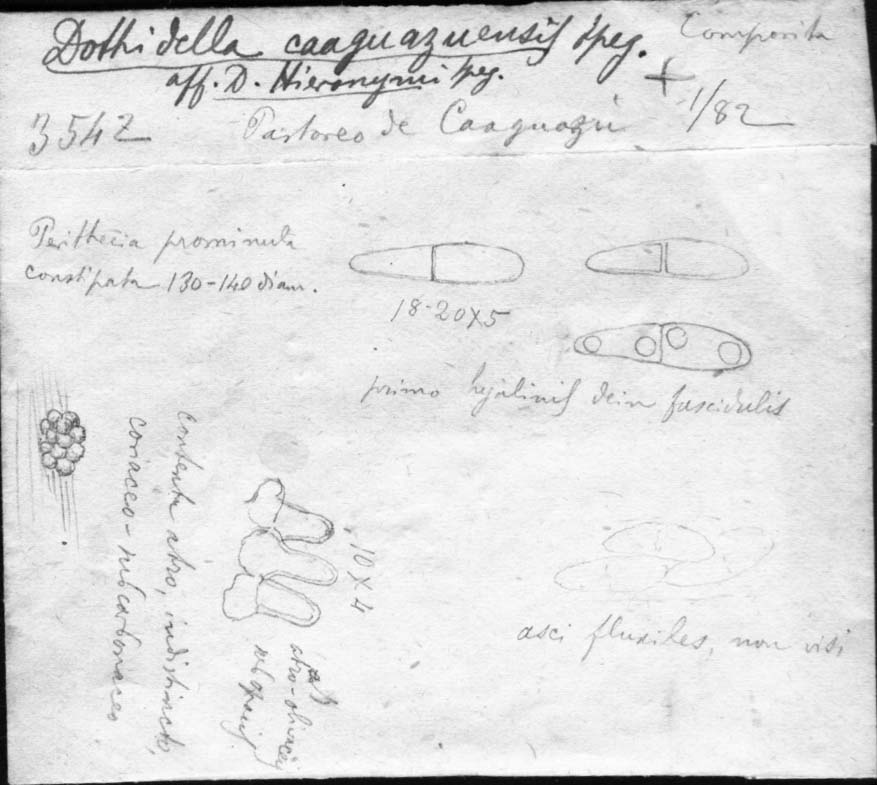 Dothidella caaguazuensis Speg. Composita
aff. D. Hieronymi Speg. +
3542 Pastoreo de Caaguazú 1/82
Perithecia prominula
constipata 130-140 diam.
18-20X5
primo hyalinis dein fuscidulis
contextu atro, indistincto,
coriaceo-subcarbonaceo
10X4
atro-olivaceis
asci fluxiles, non visi